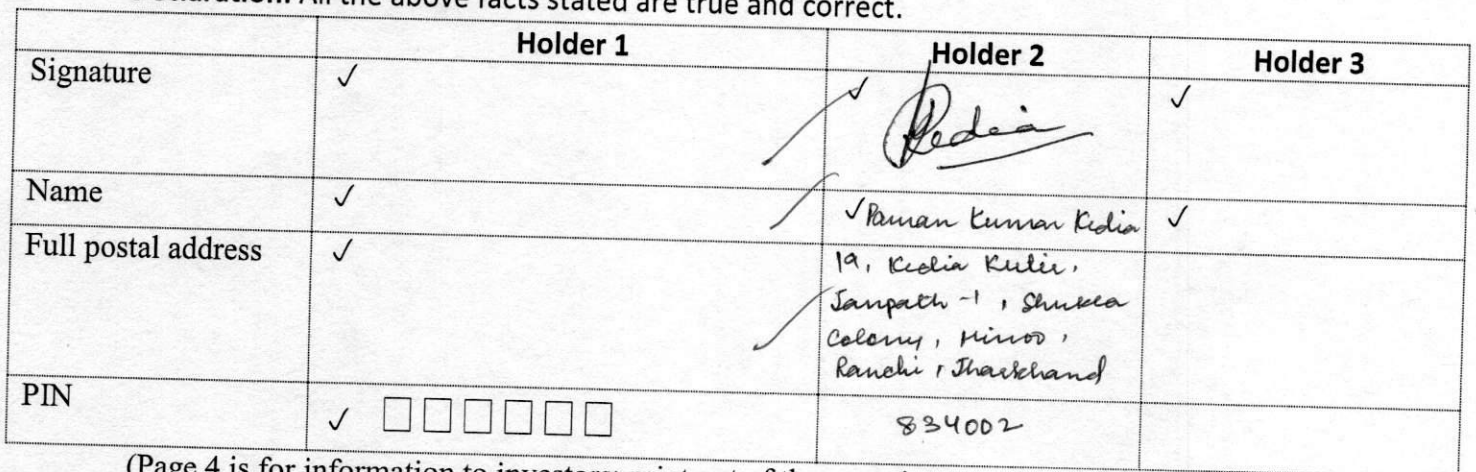 All the above facts stated are true and correct.
Holder 1 Holder 2 Holder 3
Signature ✓ ✓ Kedia ✓
Name ✓ ✓ Pawan Kumar Kedia ✓
Full postal address ✓ 19, Kedia Kutir,
Janpath -1, Shukla
Colony, Hinoo,
Ranchi, Jharkhand
PIN ✓ 834002
(Page 4 is for information to investors